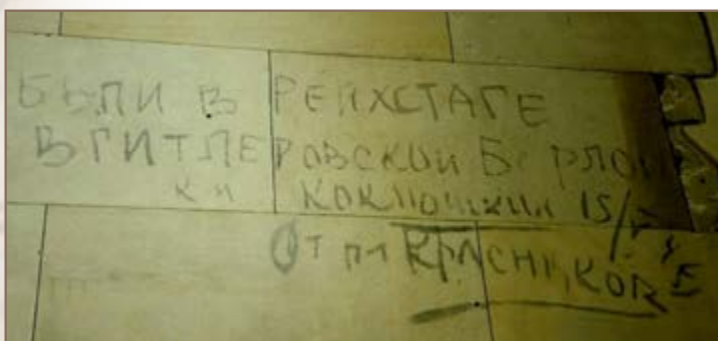 БЫЛИ В РЕЙХСТАГЕ
В ГИТЛЕРОВСКОЙ БЕРЛОГЕ
КОКЛЮШКИН 15/
КРАСНИКОВ Е